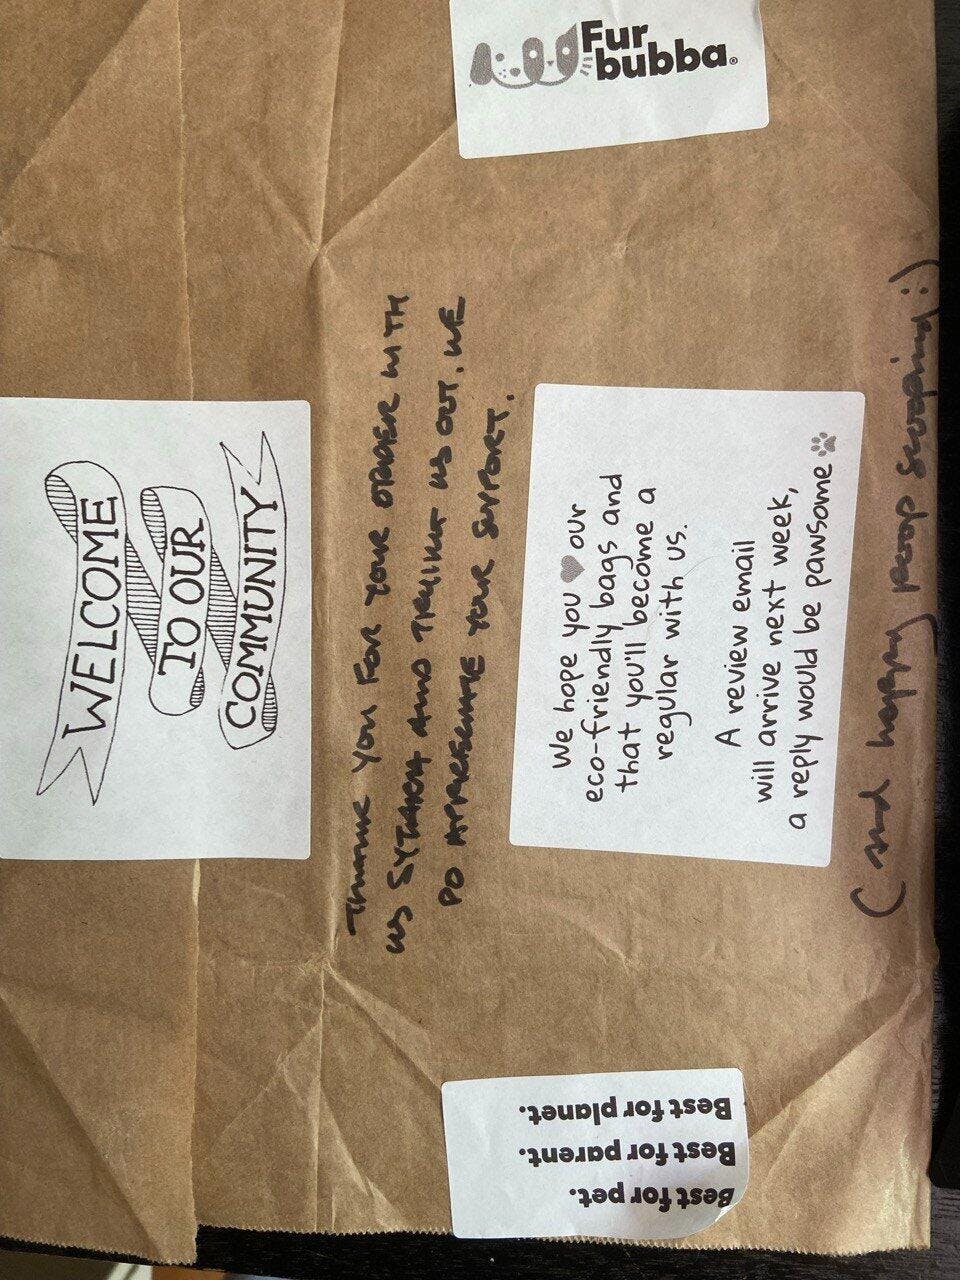 WELCOME
TO OUR
COMMUNITY
THANK YOU FOR YOUR ORDER WITH
US AND TRYING US OUT. WE
DO APPRECIATE YOUR SUPPORT.
We hope you our
eco-friendly bags and
that you'll become a
regular with us.
A review email
will arrive next week,
a reply would be pawsome
(and happy poop scooping :)
Fur
bubba®
Best for pet.
Best for parent.
Best for planet.